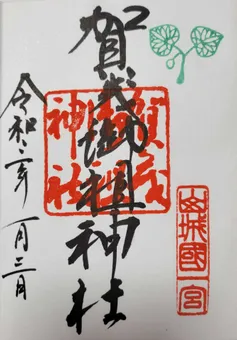 賀茂御祖神社
令和二年一月三日
賀茂御祖神社
山城國一宮